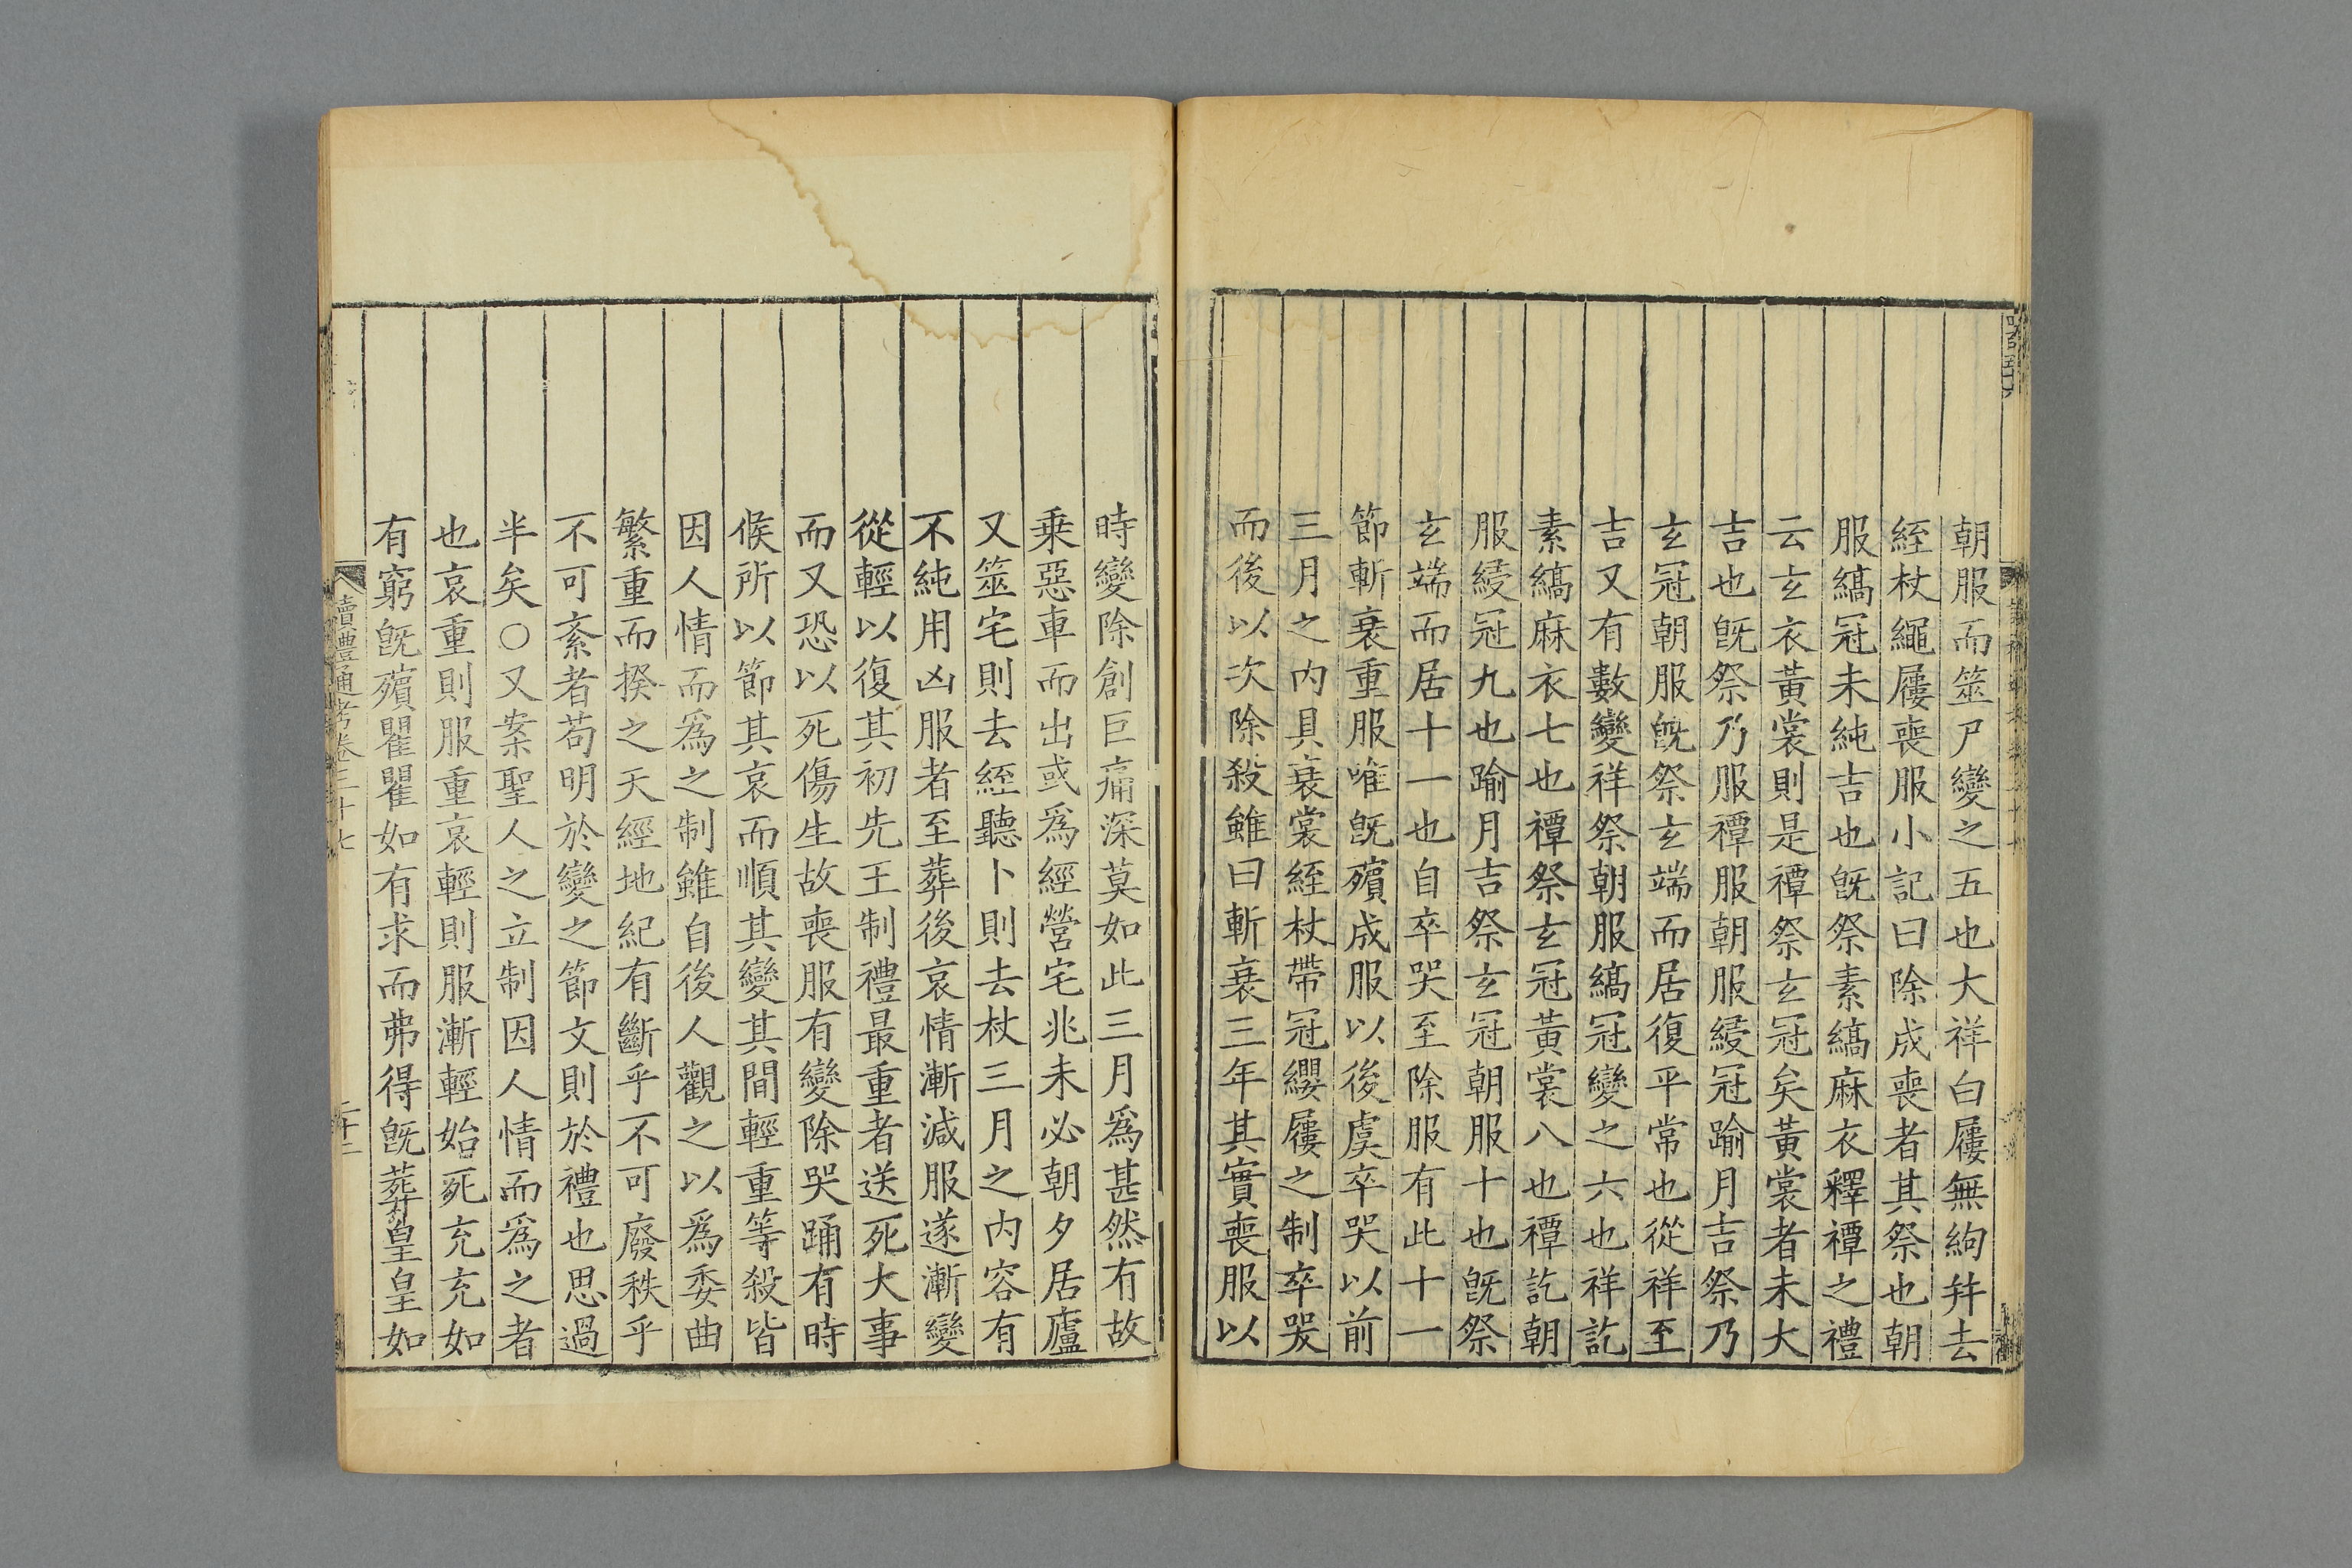 朝服而筮尸變之五也大祥白屨無絇幷去
絰杖繩屨喪服小記曰除成喪者其祭也朝
服縞冠未純吉也旣祭素縞麻衣釋禫之禮
云玄衣黃裳則是禫祭玄冠矣黃裳者未大
吉也旣祭乃服禫服朝服綅冠踰月吉祭乃
玄冠朝服旣祭玄端而居復平常也從祥至
吉又有數變祥祭朝服縞冠變之六也祥訖
素縞麻衣七也禫祭玄冠黃裳八也禫訖朝
服綅冠九也踰月吉祭玄冠朝服十也旣祭
玄端而居十一也自卒哭至除服有此十一
節斬衰重服唯旣殯成服以後虞卒哭以前
三月之內具衰裳絰杖帶冠纓屨之制卒哭
而後以次除殺雖曰斬衰三年其實喪服以
時變除創巨痛深莫如此三月爲甚然有故
乗惡車而出或爲經營宅兆未必朝夕居廬
又筮宅則去絰聽卜則去杖三月之內容有
不純用凶服者至葬後哀情漸減服遂漸變
從輕以復其初先王制禮最重者送死大事
而又恐以死傷生故喪服有變除哭踊有時
候所以節其哀而順其變其間輕重等殺皆
因人情而爲之制雖自後人觀之以爲委曲
繁重而揆之天經地紀有斷乎不可廢秩乎
不可紊者苟明於變之節文則於禮也思過
半矣○又案聖人之立制因人情而爲之者
也哀重則服重哀輕則服漸輕始死充充如
有窮旣殯瞿瞿如有求而弗得旣葬皇皇如
讀禮通考卷三十七
二十二